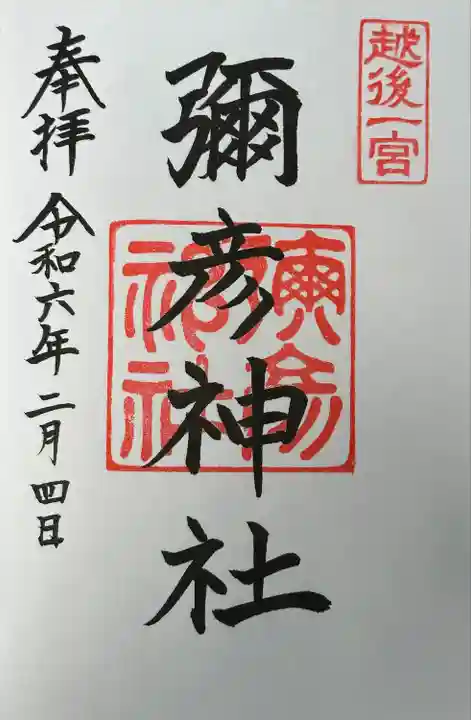 越後一宮
彌彦神社
奉拝 令和六年 二月 四日